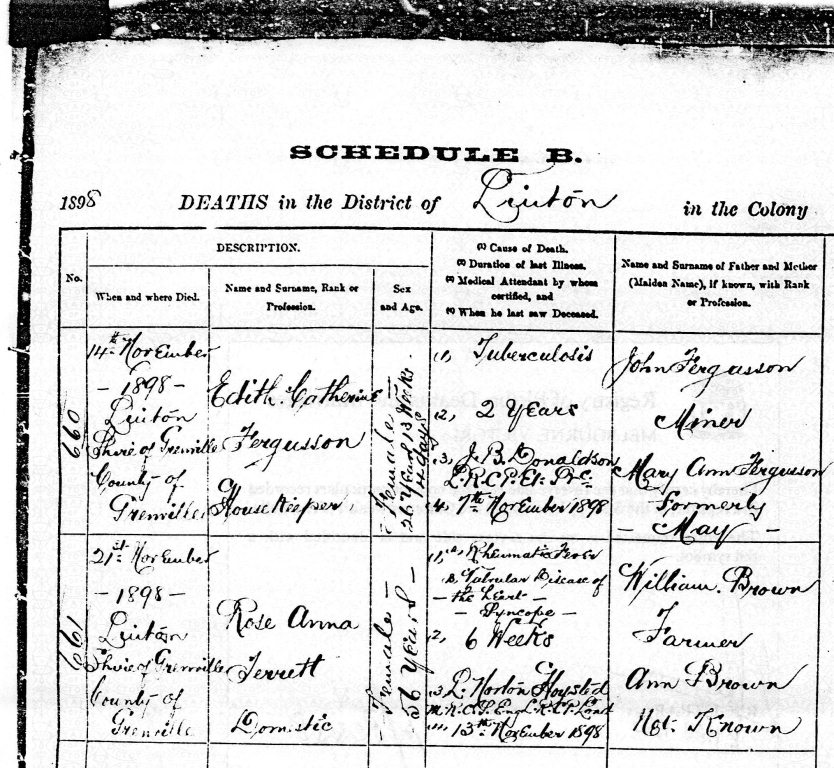 SCHEDULE B.
1898 DEATHS in the District of Linton in the Colony
DESCRIPTION.
No.
When and where Died.
Name and Surname, Rank or
Profession.
Sex
and Age.
(1) Cause of Death.
(2) Duration of last Illness.
(3) Medical Attendant by whom
certified, and
(4) When he last saw Deceased.
Name and Surname of Father and Mother
(Maiden Name), if known, with Rank
or Profession.
660
14th November
- 1898 -
Linton
Shire of Grenville
County of
Grenville
Edith Catherine
Fergusson
Housekeeper
- Female -
26 Years 13 Weeks
4 days
(1, Tuberculosis
(2, 2 Years
(3, J. B. Donaldson
L.R.C.P. Et.
(4, 7th November 1898
John Fergusson
Miner
Mary Ann Fergusson
- Formerly
- May -
661
21st November
- 1898 -
Linton
Shire of Grenville
County of
Grenville
Rose Anna
Terrett
Domestic
- Female -
36 Years -
(1, a, Rheumatic Fever
B. Valvular Disease of
- the Heart -
- Syncope -
(2, 6 Weeks
(3 L. Norton Hoysted
M.R.C.P. Eng L.R.C.P. Lond
13th November 1898
William Brown
Farmer
Ann Brown
Not Known